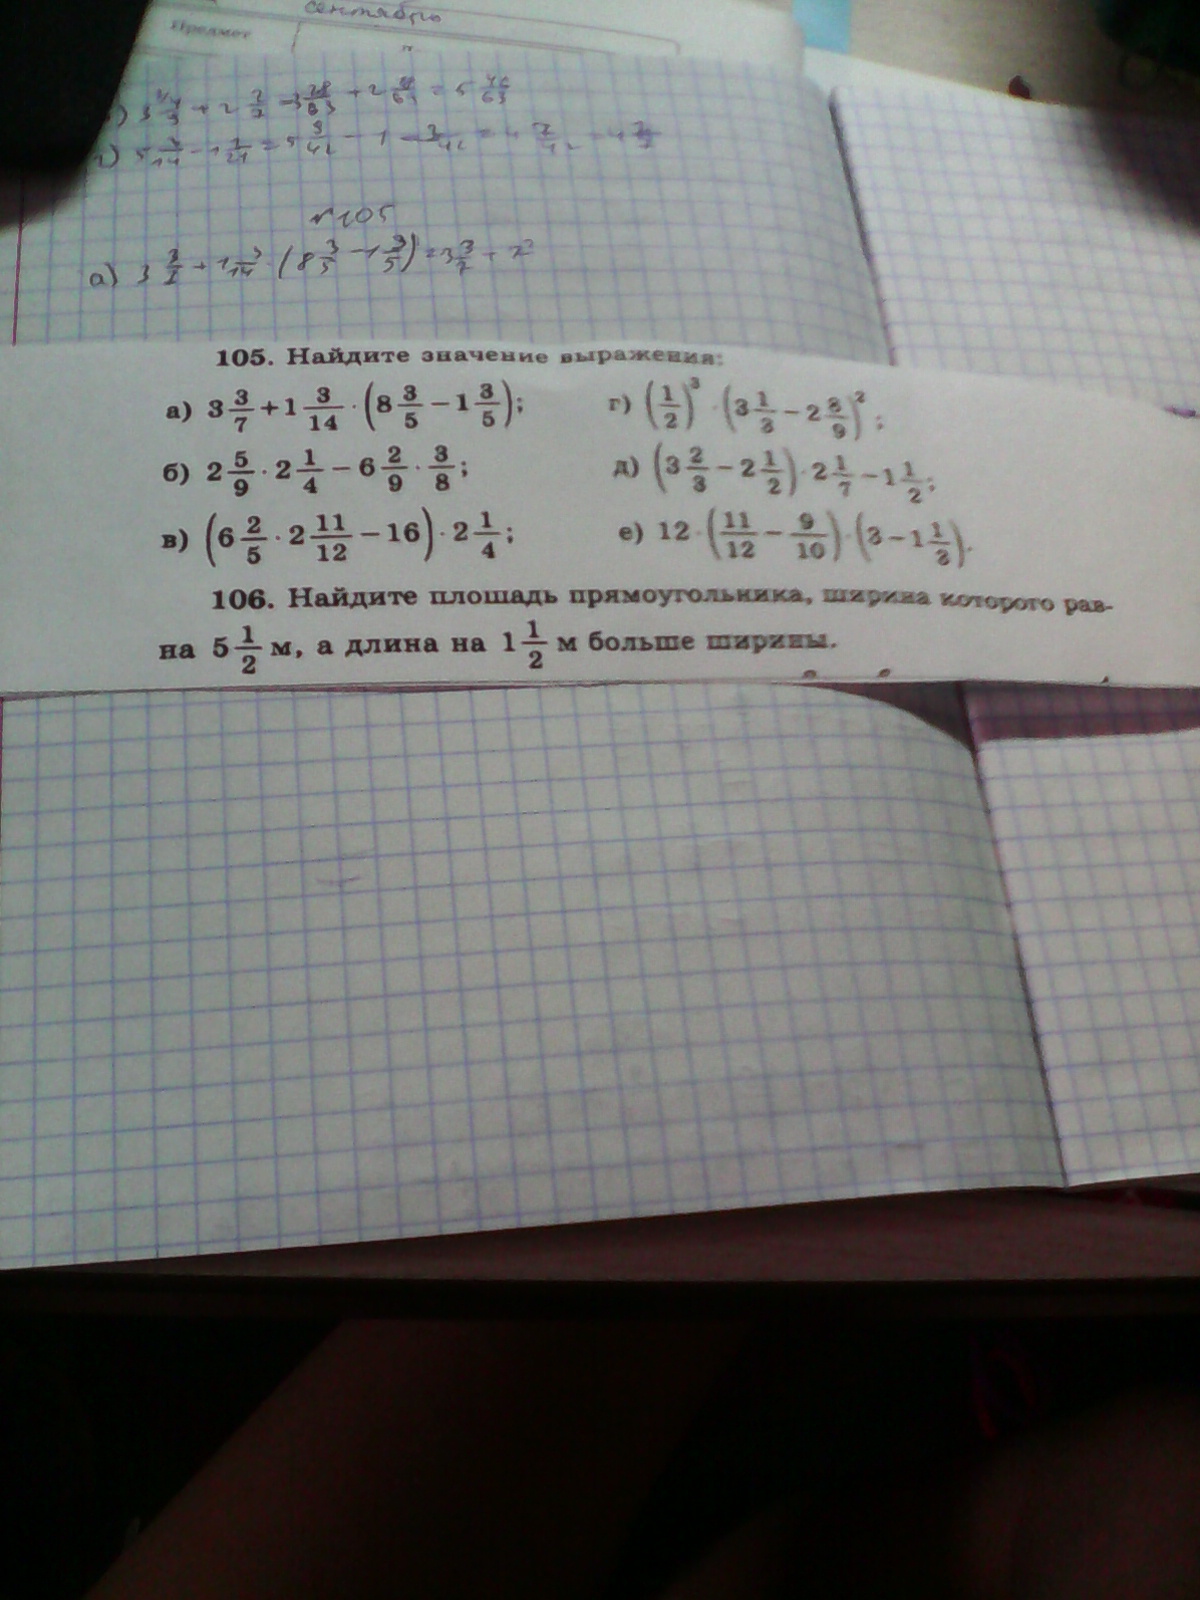 сентябрь
Предмет
№105
а) 3 3/7 + 1 3/14 · (8 3/5 − 1 3/5) = 3 3/7 +
105. Найдите значение выражения:
а) 3 3/7 + 1 3/14 · (8 3/5 − 1 3/5);
б) 2 5/9 · 2 1/4 − 6 2/9 · 3/8;
в) (6 2/5 · 2 11/12 − 16) · 2 1/4;
г) (1/2)³ · (3 1/3 − 2 8/9)²;
д) (3 2/3 − 2 1/2) · 2 1/7 − 1 1/2;
е) 12 · (11/12 − 9/10) · (3 − 1 1/3).
106. Найдите площадь прямоугольника, ширина которого рав-
на 5 1/2 м, а длина на 1 1/2 м больше ширины.